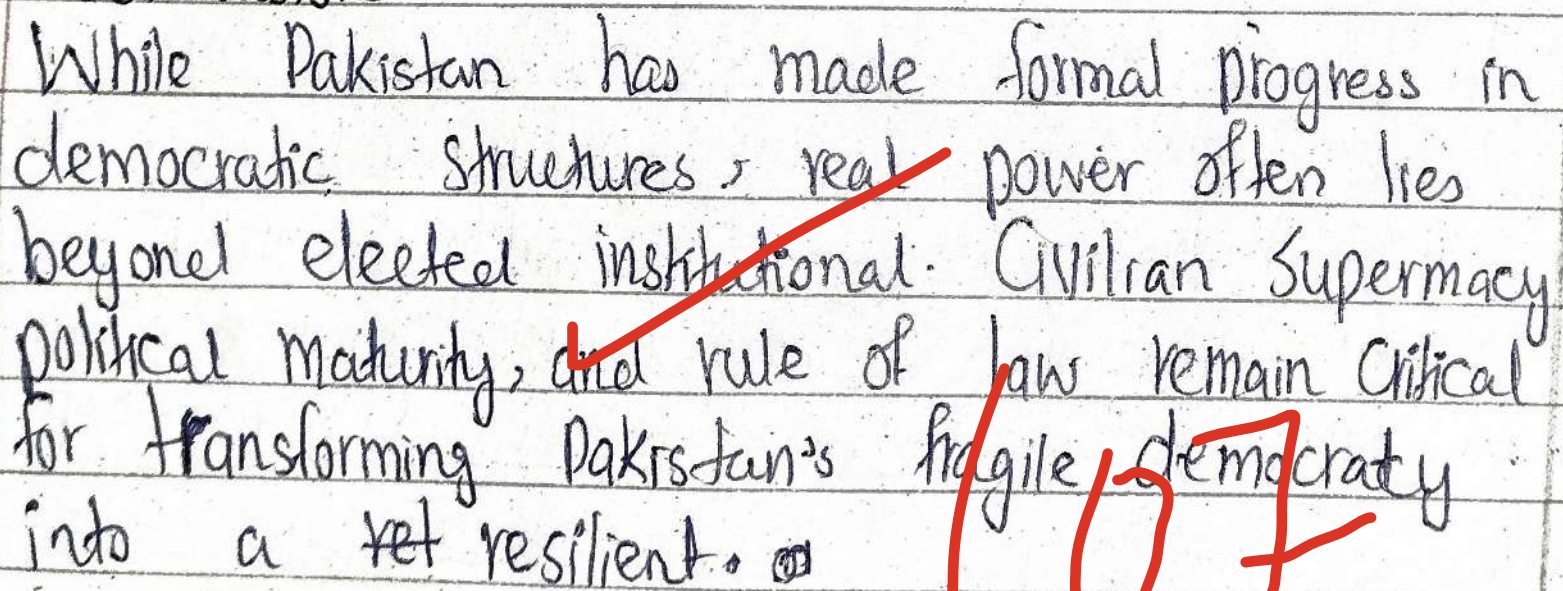 While Pakistan has made formal progress in
democratic structures, real power often lies
beyond elected institutional. Civilian Supermacy
political maturity, and rule of law remain Critical
for transforming Pakistan's fragile democracy
into a ret resilient.